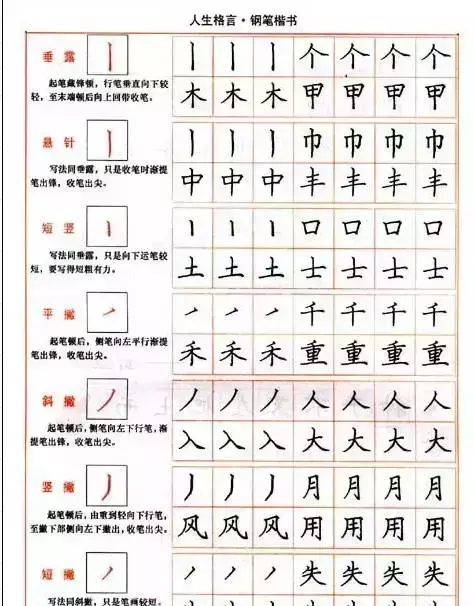 人生格言·钢笔楷书
垂露 丨 丨 丨 丨 个 个 个 个
起笔藏锋顿，行笔垂直向下较
轻，至末端顿后向上回带收笔。
木 木 木 甲 甲 甲 甲
悬针 丨 丨 丨 丨 巾 巾 巾 巾
写法同垂露，只是收笔时渐提
笔出锋，收笔出尖。
中 中 中 丰 丰 丰 丰
短竖 丨 丨 丨 丨 口 口 口 口
写法同垂露，只是向下运笔较
短，要写得短粗有力。
土 土 土 士 士 士 士
平撇 丿 丿 丿 丿 千 千 千 千
起笔顿后，侧笔向左平行渐提
笔出锋，收笔出尖。
禾 禾 禾 重 重 重 重
斜撇 丿 丿 丿 丿 人 人 人 人
起笔顿后，侧笔向左下行笔，渐
提笔出锋，收笔出尖。
入 入 入 大 大 大 大
竖撇 丿 丿 丿 丿 月 月 月 月
起笔顿后，由重到轻向下行笔，
至撇下部侧向左下撇出，收笔出尖。
风 风 风 用 用 用 用
短撇 丿 丿 丿 丿 失 失 失 失
写法同斜撇，只是笔画较短。